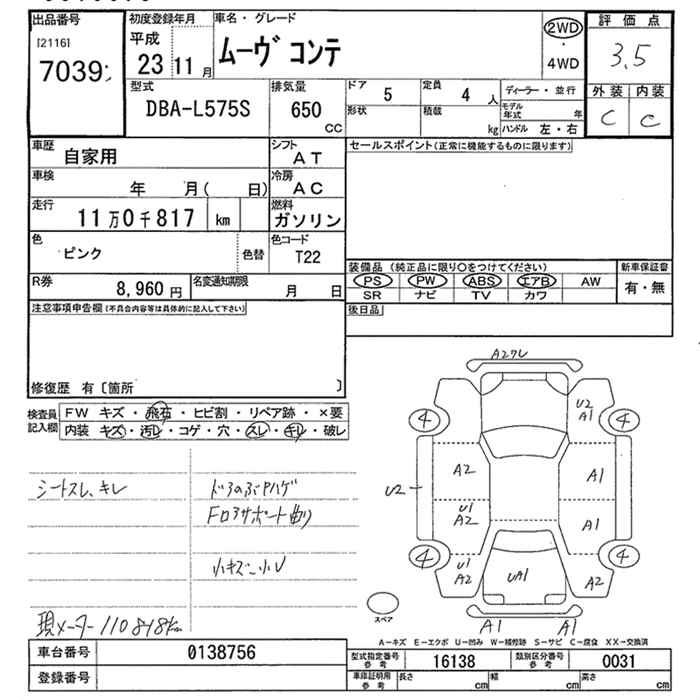 出品番号
[2116]
7039
初度登録年月
平成
23 11 月
車名・グレード
ムーヴ コンテ
2WD
・
4WD
評価点
3.5
外装 内装
C C
型式
DBA-L575S
排気量
650
CC
ドア
5
定員
4 人
形状
積載
kg
ディーラー・並行
モデル年式 年
ハンドル 左・右
車歴
自家用
シフト
AT
セールスポイント(正常に機能するものに限ります)
車検
年 月( 日)
冷房
AC
走行
11万0千817 km
燃料
ガソリン
色
ピンク
色替
色コード
T22
装備品 (純正品に限り○をつけてください)
PS PW ABS エアB AW
SR ナビ TV カワ
新車保証書
有・無
R券
8,960 円
名変通知期限
月 日
後日品
注意事項申告欄(不具合内容等は具体的に記入して下さい)
修復歴 有〔箇所 〕
検査員記入欄
FW キズ・飛石・ヒビ割・リペア跡・×要
内装 キズ・汚レ・コゲ・穴・スレ・キレ・破レ
シートスレ、キレ
ドアのぶPハゲ
Fロアサポート曲り
小キズ、小U
現メーター110818km
A2ワレ
U2
A1
4
4
A2
A1
U2
U1
A2
A1
4
4
U1
A2
UA1
A2
A1
A1
スペア
A-キズ E-エクボ U-凹み W-補修跡 S-サビ C-腐食 XX-交換済
車台番号
0138756
登録番号
型式指定番号
参考
16138
類別区分番号
参考
0031
車庫証明用
参考
長さ cm
幅 cm
高さ cm